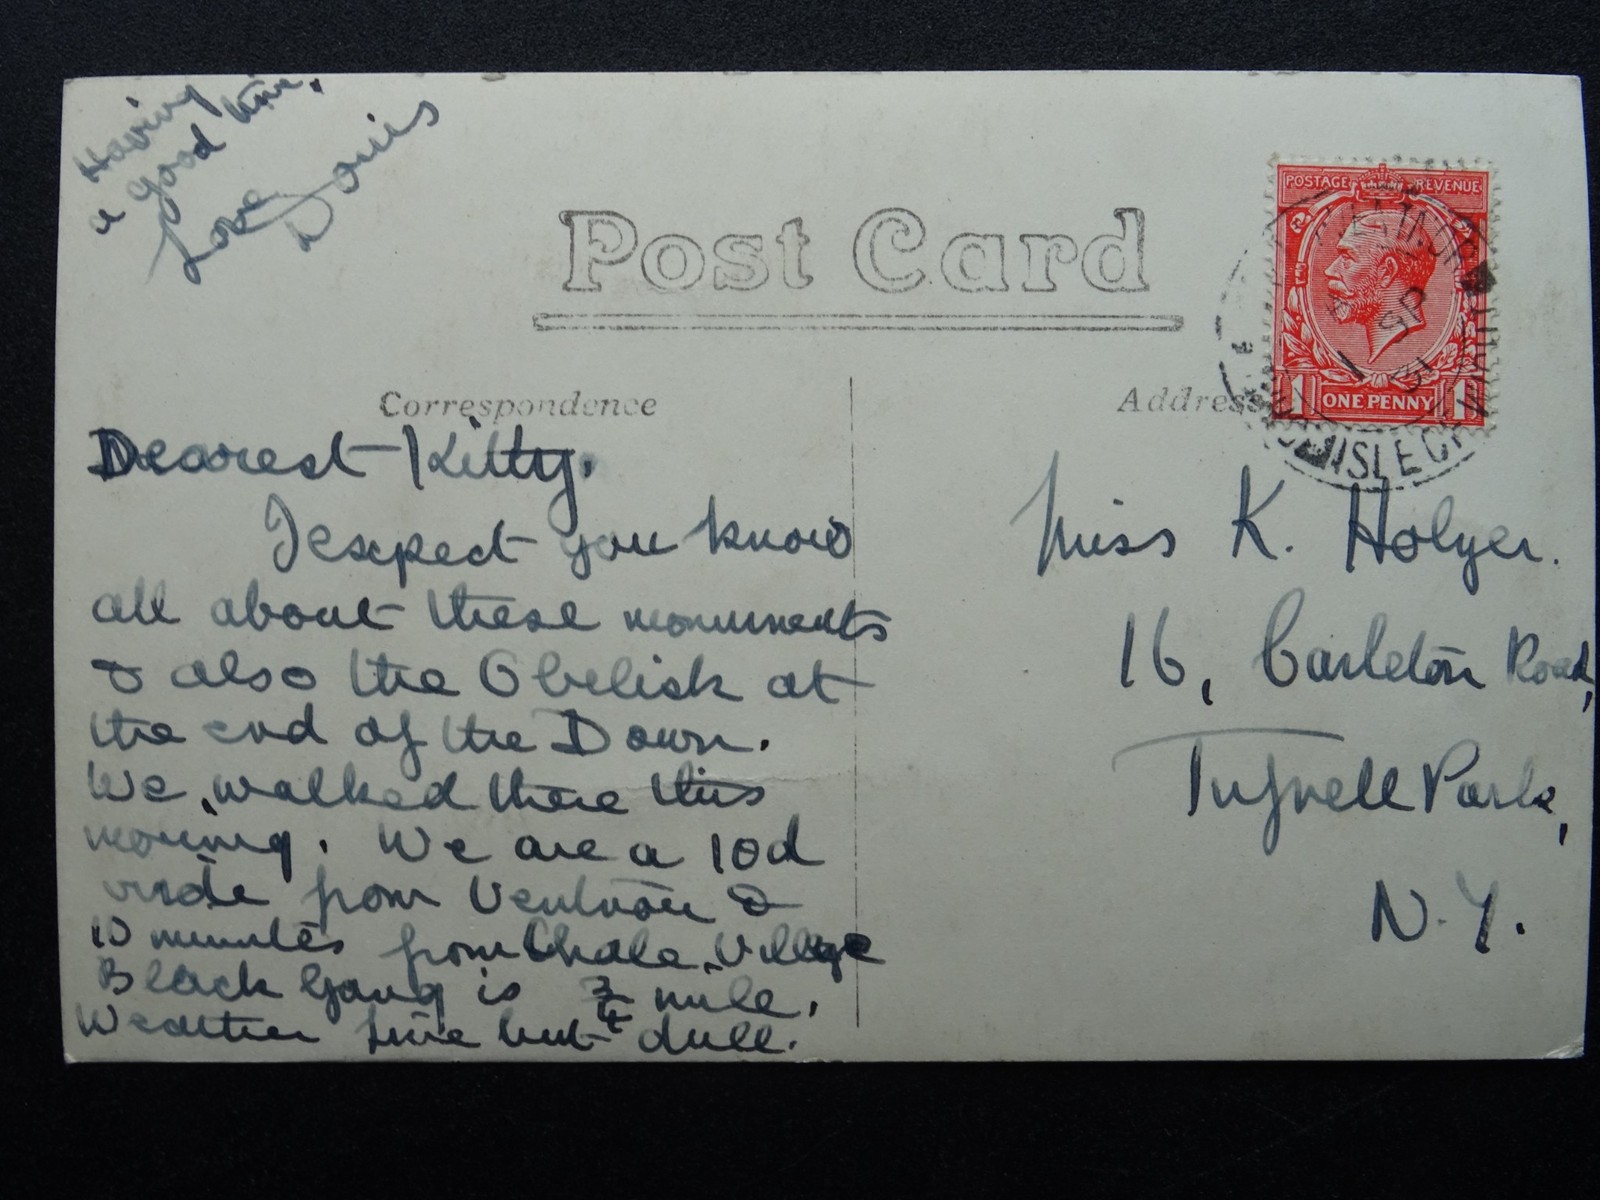 Having
a good time,
Love
Doris
Post Card
Correspondence
Address
POSTAGE REVENUE
1 ONE PENNY 1
1 SP
31
ISLE OF WIGHT
Dearest Kitty.
I expect you know
all about these monuments
& also the Obelisk at
the end of the Down.
We walked there this
morning. We are a 10d
ride from Ventnor &
10 minutes from Chale Village
Black Gang is 3/4 mile.
Weather fine but dull.
Miss K. Holyer.
16, Carleton Road,
Tufnell Park,
N.7.